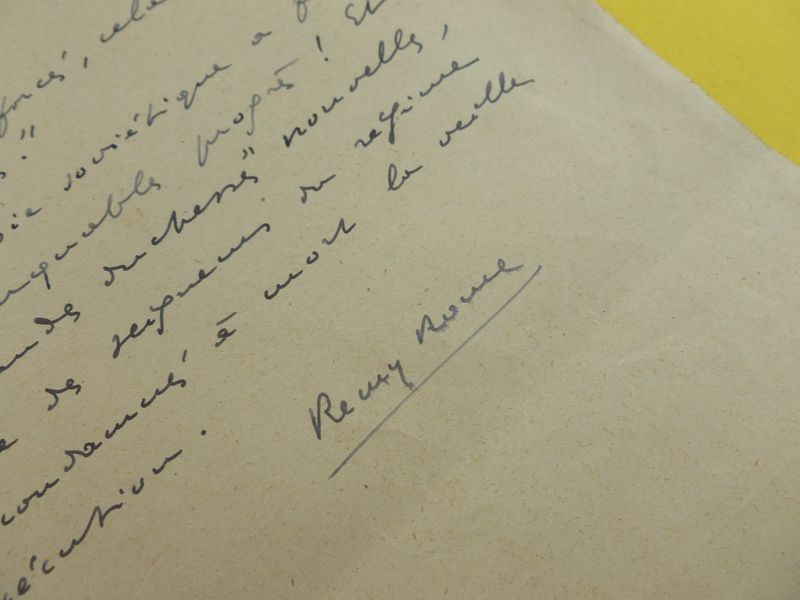 forcés, cela
s."
sie soviétique a
quables progrès ! Et
andes duchesses" nouvelles,
e de seigneurs du régime
condamnés à mort la veille
exécution.
Remy Roure